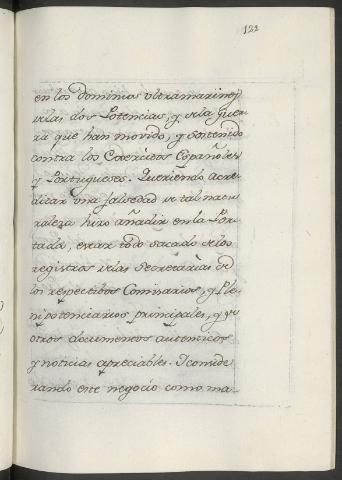 122
en los Dominios ultramarinos
de las dos Potencias, y de la guer-
ra que han movido, y sostenido
contra los Exercitos Españoles,
y Portugueses. Queriendo acre-
ditar una falsedad de tal natu
raleza hizo añadir en la Por-
tada, estar todo sacado de los
registros de las Secretarías de
los respectibos Comisarios, y Ple-
nipotenciarios principales, y de
otros documentos autenticos
y noticias apreciables. Conside
rando este negocio como ma-